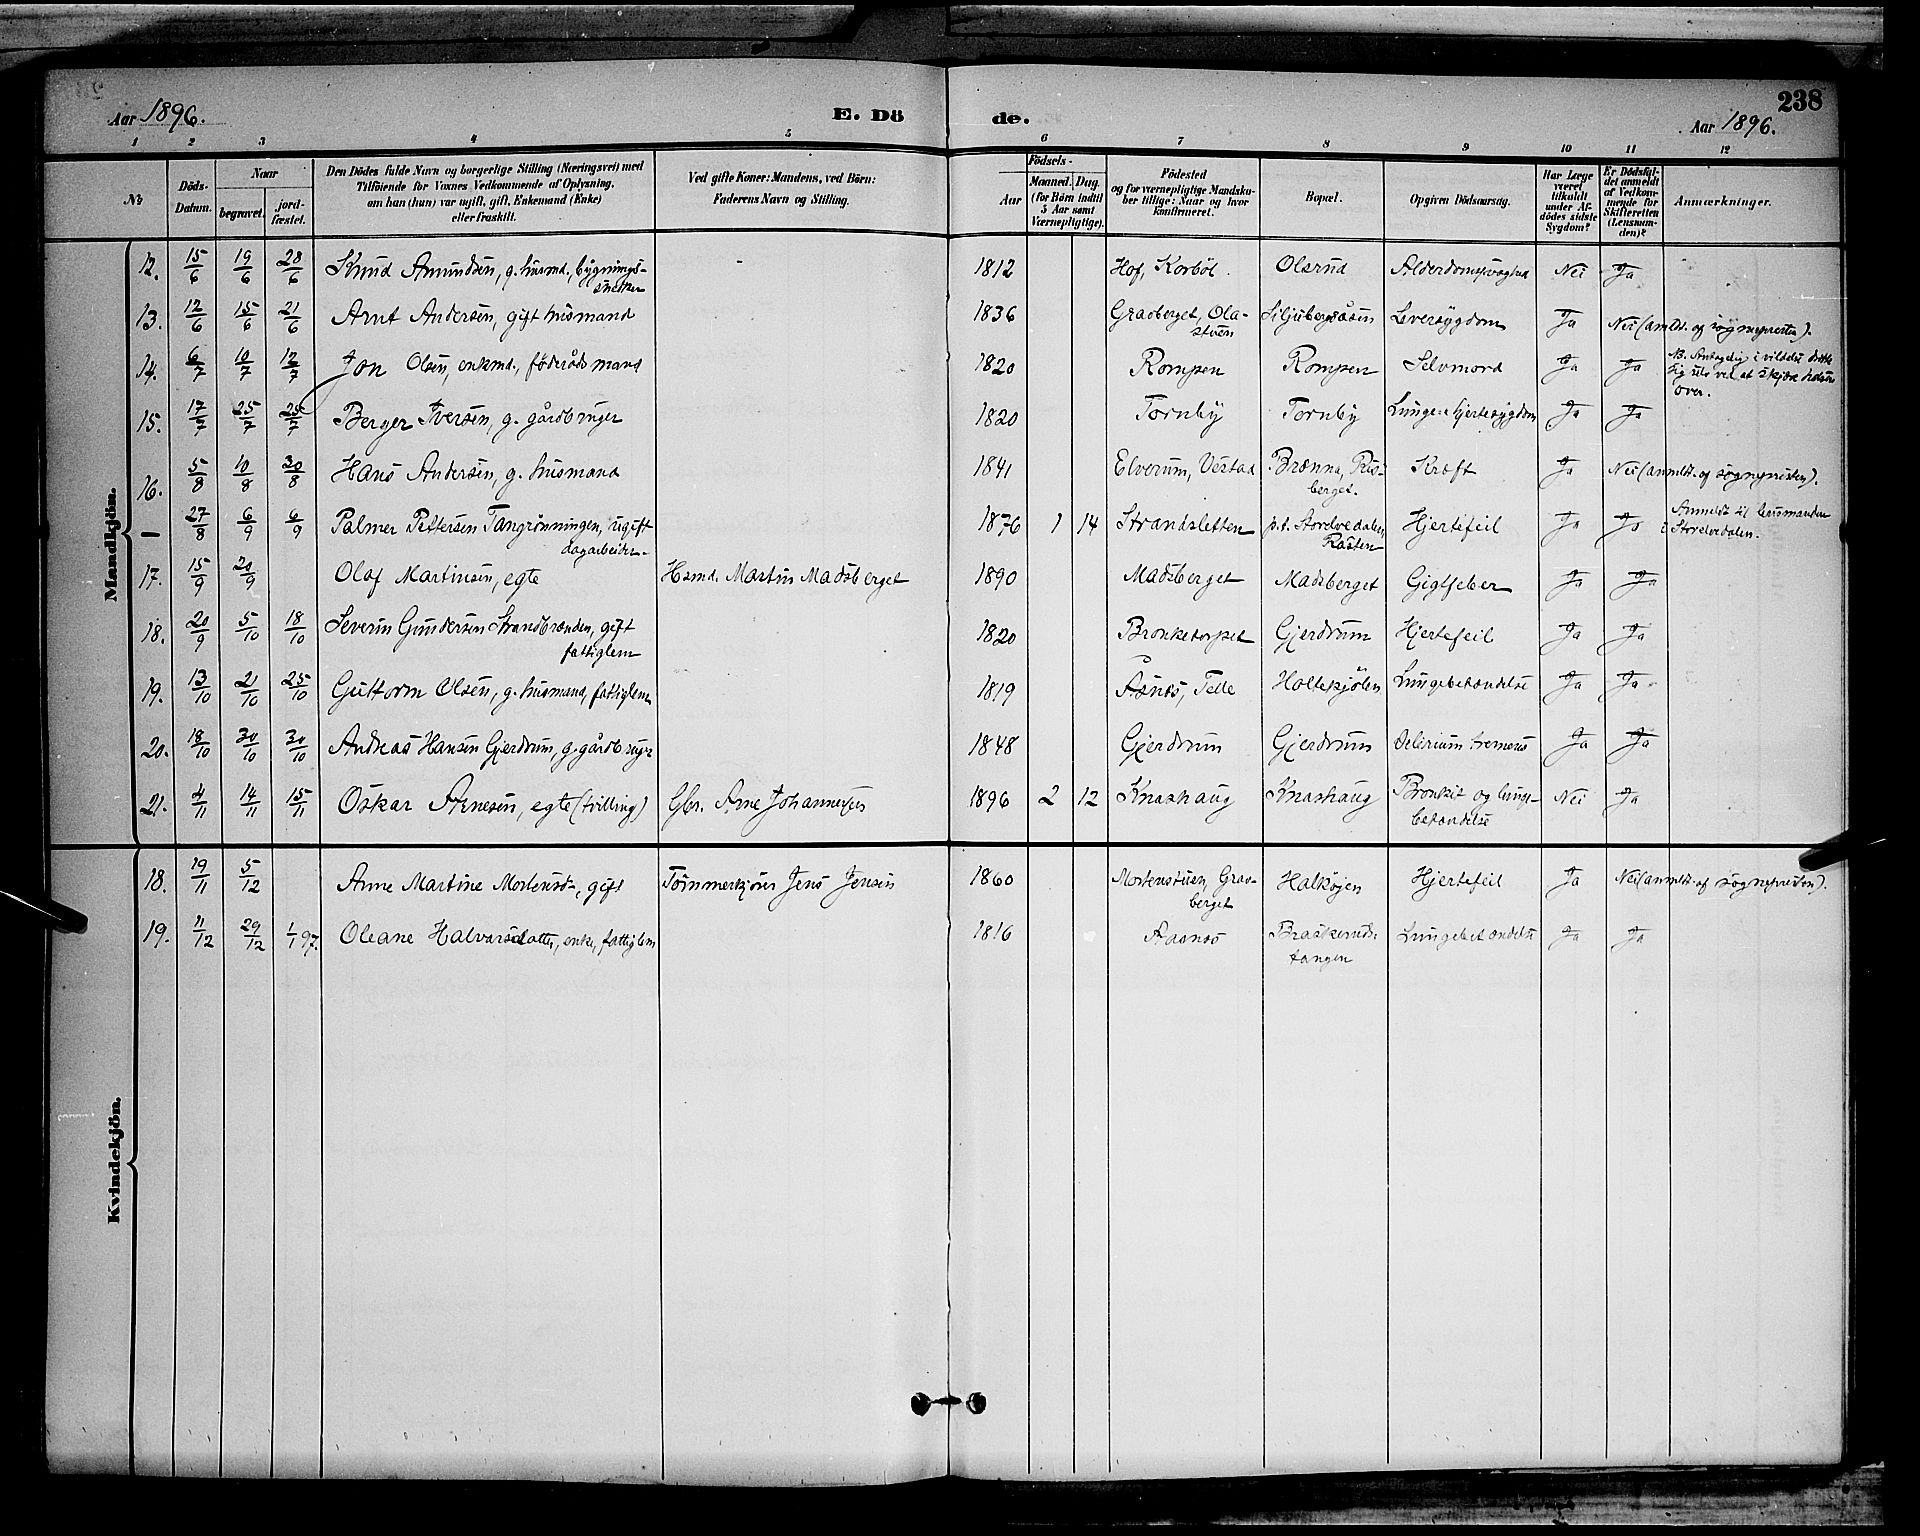 238
Aar 1896. E. Dö de. Aar 1896.
1 2 3 4 5 6 7 8 9 10 11 12
№
Döds-Datum.
Naar
begravet.
jord-fæstet.
Den Dödes fulde Navn og borgerlige Stilling (Næringsvei) med
Tilföiende for Voxnes Vedkommende af Oplysning,
om han (hun) var ugift, gift, Enkemand (Enke)
eller fraskilt.
Ved gifte Koner: Mandens, ved Börn:
Faderens Navn og Stilling.
Födsels-
Aar
Maaned. Dag.
(for Börn indtil
5 Aar samt
Værnepligtige).
Födested
og for værnepligtige Mandska-
ber tillige: Naar og hvor
konfirmeret.
Bopæl.
Opgiven Dödsaarsag.
Har Læge
været
tilkaldt
under Af-
dödes sidste
Sygdom?
Er Dödsfal-
det anmeldt
af Vedkom-
mende for
Skifteretten
(Lensman-
den)?
Anmærkninger.
Mandkjön.
12. 15/6 19/6 28/6 Knud Amundsen, g. husmd., bygnings-snekker 1812 Hof, Korböl. Olsrud Nei Ja
13. 12/6 15/6 21/6 Arnt Andersen, gift husmand 1836 Gravberget, Ola-stuen Siljubergsåsen Leversygdom Ja Nei (anmldt. af sogneprsten).
14. 6/7 10/7 12/7 Jon Olsen, enkmd., föderådsmand 1820 Rompen Rompen Selvmord Ja Ja NB. Antagelig i vildelse dræbte sig selv ved at skjære halsen over.
15. 17/7 25/7 25/7 Berger Iversen, g. gårdbruger 1820 Tornby Tornby Lunge & hjertesygdom Ja Ja
16. 5/8 10/8 30/8 Hans Andersen, g. husmand 1841 Elverum, Vestad Brænna, Risberget. Kræft Ja Nei (anmeldt. af sognepresten).
— 27/8 6/9 6/9 Palmer Pettersen Tangrönningen, ugift dagarbeider. 1876 1 14 Strandsletten p.t. Storelvedalen, Rasten Hjertefeil Ja Ja Anmeldt til lensmanden i Storelvedalen.
17. 15/9 20/9 Olaf Martinsen, egte Hsmd. Martin Madsberget 1890 Madsberget Madsberget Gigtfeber Ja Ja
18. 20/9 5/10 18/10 Severin Gundersen Strandbrænden, gift fattiglem 1820 Bronketorpet Gjerdrum Hjertefeil Ja Ja
19. 13/10 21/10 25/10 Guttorm Olsen, g. husmand, fattiglem 1819 Åsnes, Telle Holtekjölen Lungebetændelse Ja Ja
20. 18/10 30/10 30/10 Andreas Hansen Gjerdrum, g. gårdbruger 1848 Gjerdrum Gjerdrum Delirium tremens Ja Ja
21. 4/11 14/11 15/11 Oskar Arnesen, egte (tvilling) Gbr. Arne Johannesen 1896 2 12 Knashaug Knashaug Bronkit og lunge-betændelse Nei Ja
Kvindekjön.
18. 19/11 5/12 Anne Martine Mortensdr., gift Tömmerkjörer Jens Jensen 1860 Mortenstuen, Grav-berget Halksjøen Hjertefeil Ja Nei (anmeldt. af sognepresten).
19. 11/12 29/12 1/1 97. Oleane Halvorsdatter, enke, fattiglem 1816 Aasnes Braskeruds-tangen Lungebetændelse Ja Ja